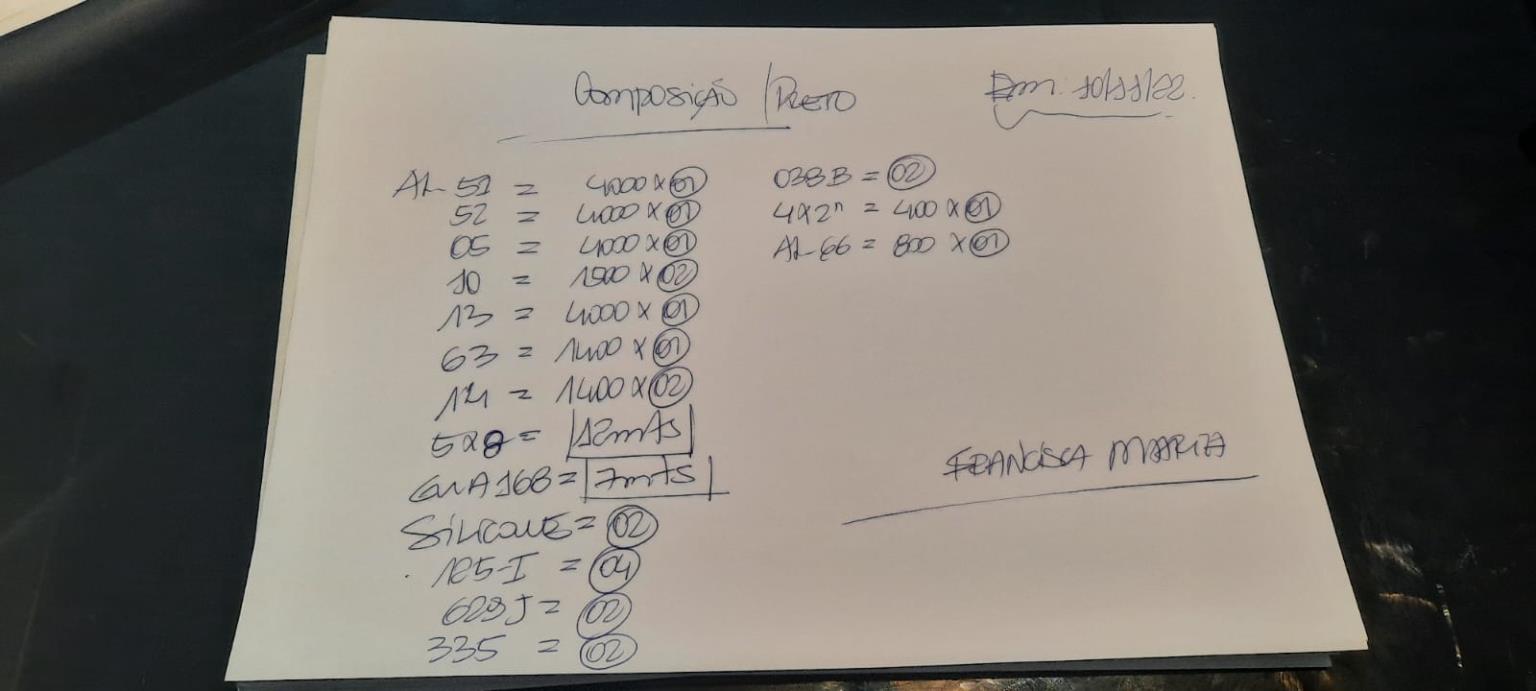 Composição / PRETO
Em: 10/11/22.
AL 51 = 4000 X 01
52 = 4000 X 01
05 = 4000 X 01
10 = 1500 X 02
13 = 4000 X 01
63 = 1400 X 01
14 = 1400 X 02
5x8 = 12mts
GUA 168 = 7mts
SILICONE = 02
125-I = 04
629 J = 02
335 = 02
038B = 02
4X2 = 400 X 01
AL 66 = 800 X 01
FRANCISCA MARIA